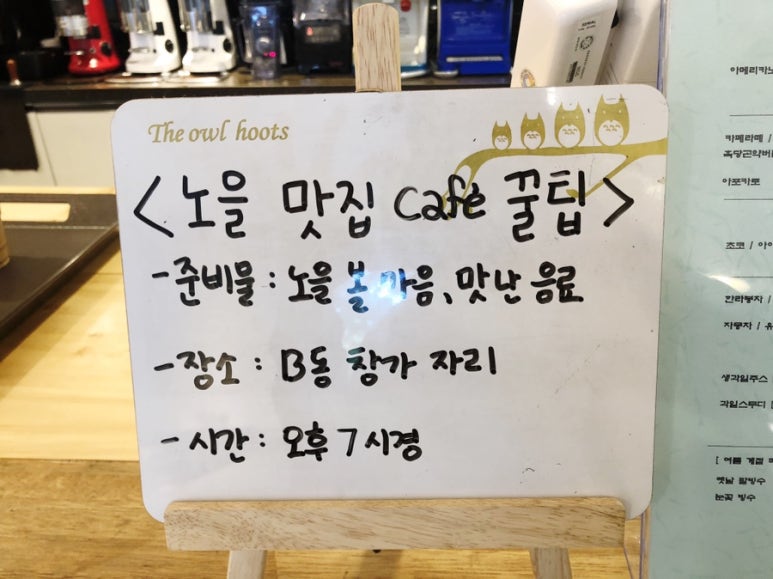 The owl hoots
<노을 맛집 cafe 꿀팁>
- 준비물 : 노을 볼 마음, 맛난 음료
- 장소 : B동 창가 자리
- 시간 : 오후 7시경
아메리카노
카페라떼 /
아포카토
초코 / 아이
한라봉차 /
자몽차 / 유
생과일주스
과일스무디 [
[ 여름 계절 메
옛날 팥빙수
눈꽃 빙수